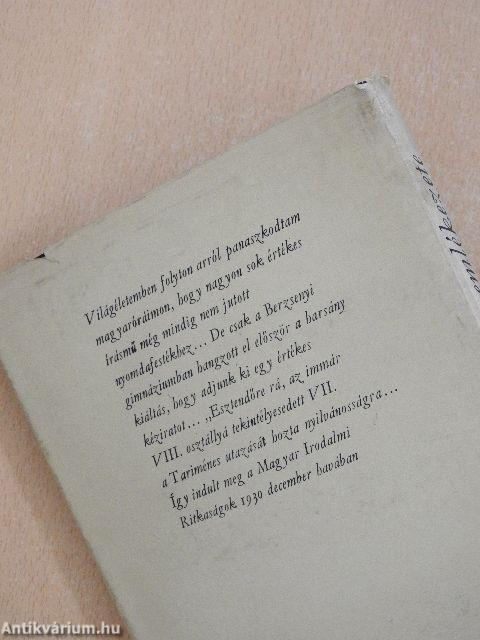 Világéletemben folyton arról panaszkodtam
magyaróráimon, hogy nagyon sok értékes
írásmű még mindig nem jutott
nyomdafestékhez... De csak a Berzsenyi
gimnáziumban hangzott el először a harsány
kiáltás, hogy adjunk ki egy értékes
kéziratot... „Esztendőre rá, az immár
VIII. osztállyá tekintélyesedett VII.
a Tariménes utazását hozta nyilvánosságra...
Így indult meg a Magyar Irodalmi
Ritkaságok 1930 december havában
emlékezete
Antikvárium.hu